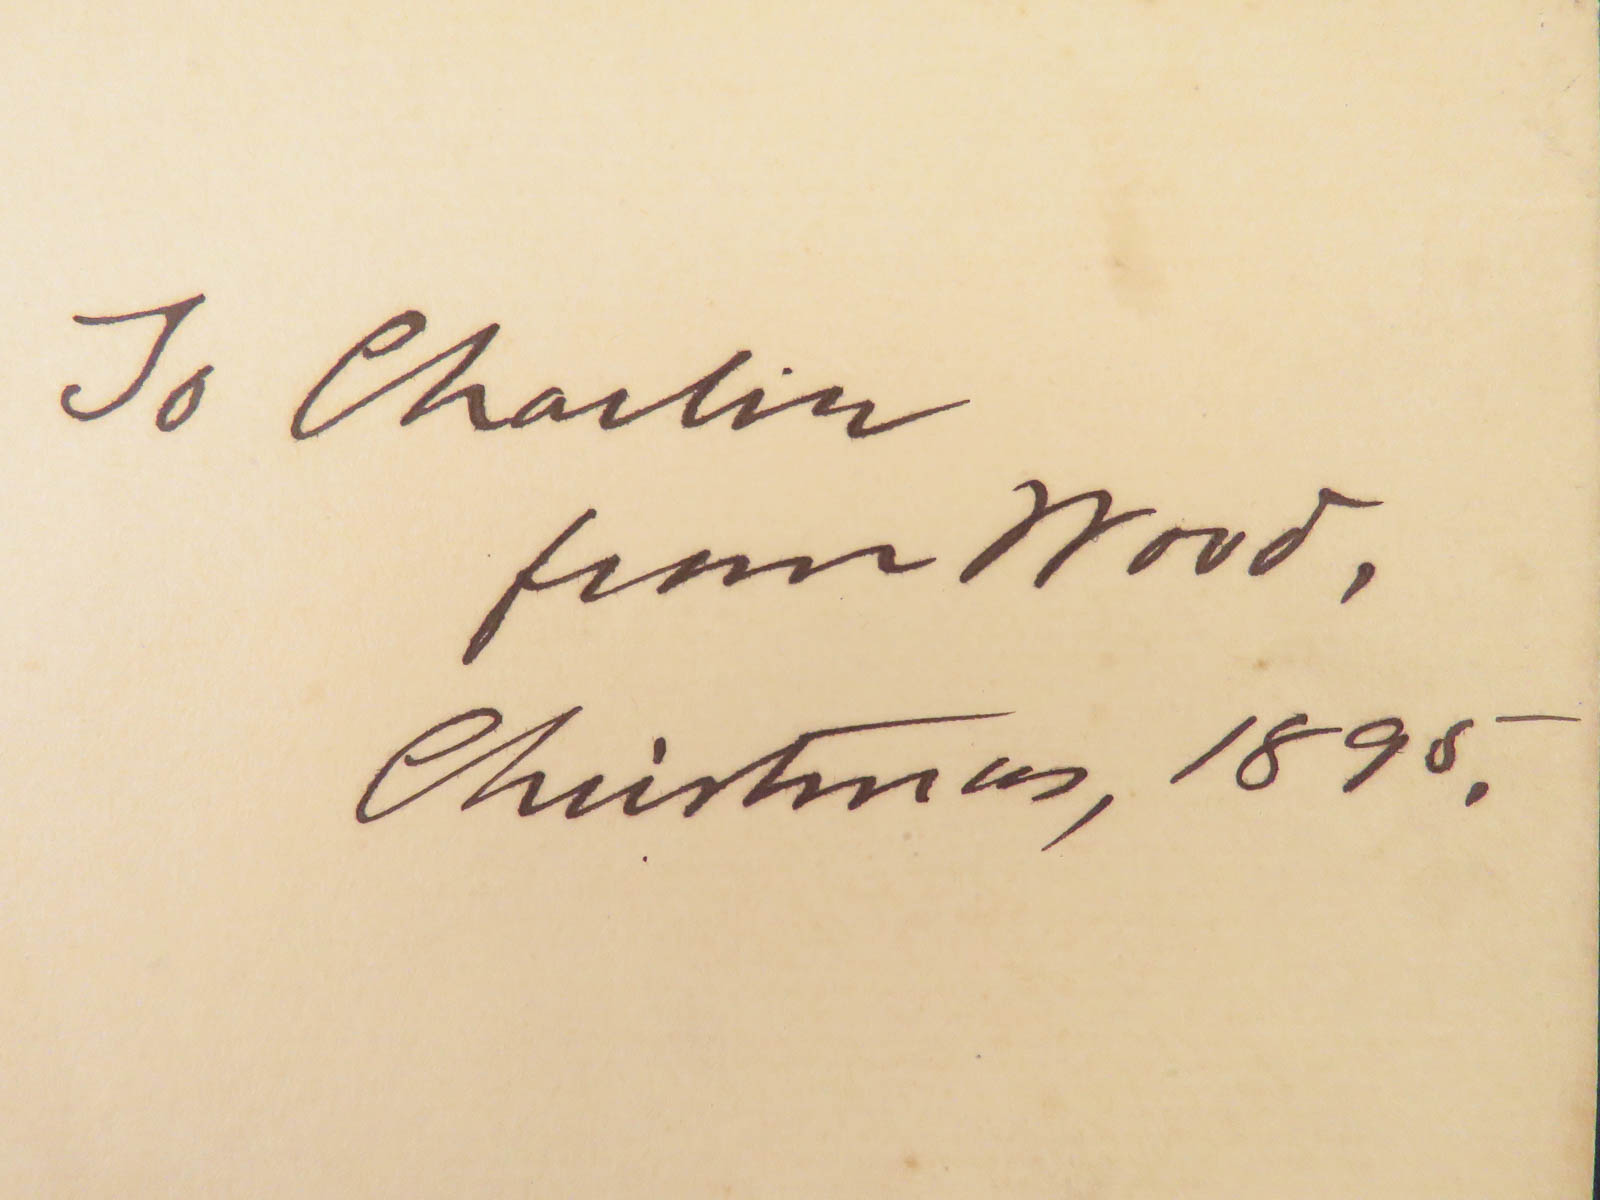 To Charlie
from Wood,
Christmas, 1895.